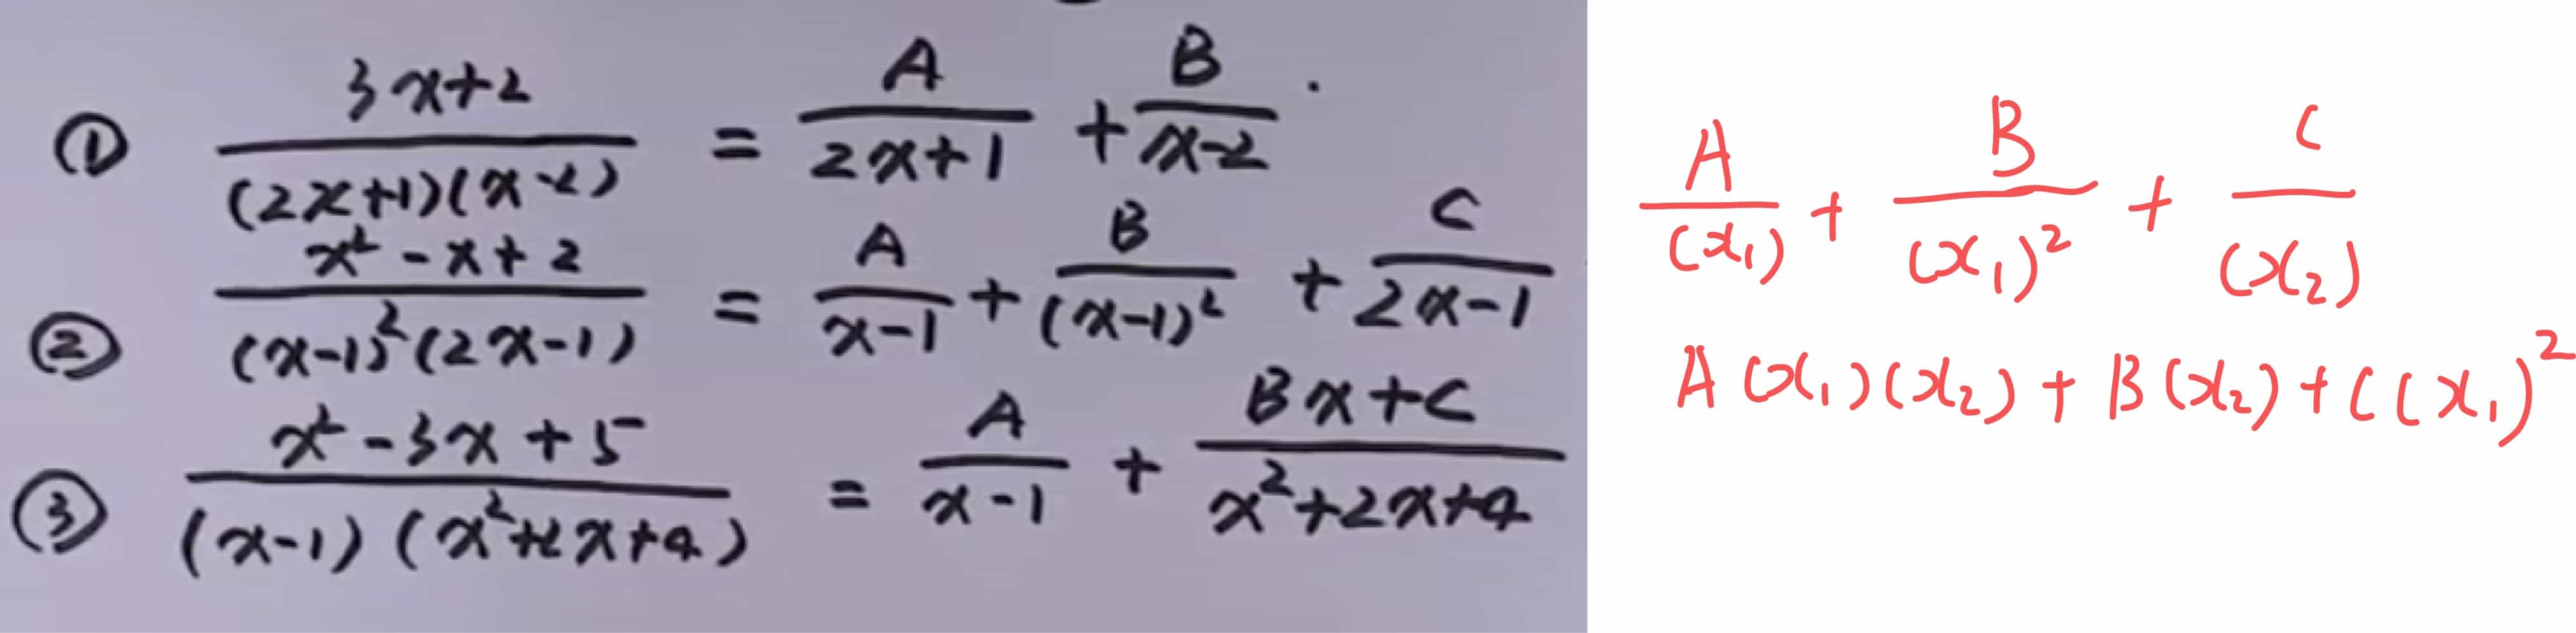 ① (3x+2)/((2x+1)(x-2)) = A/(2x+1) + B/(x-2).
② (x²-x+2)/((x-1)²(2x-1)) = A/(x-1) + B/(x-1)² + C/(2x-1)
③ (x²-3x+5)/((x-1)(x²+2x+4)) = A/(x-1) + (Bx+C)/(x²+2x+4)
A/(x₁) + B/(x₁)² + C/(x₂)
A(x₁)(x₂) + B(x₂) + C(x₁)²